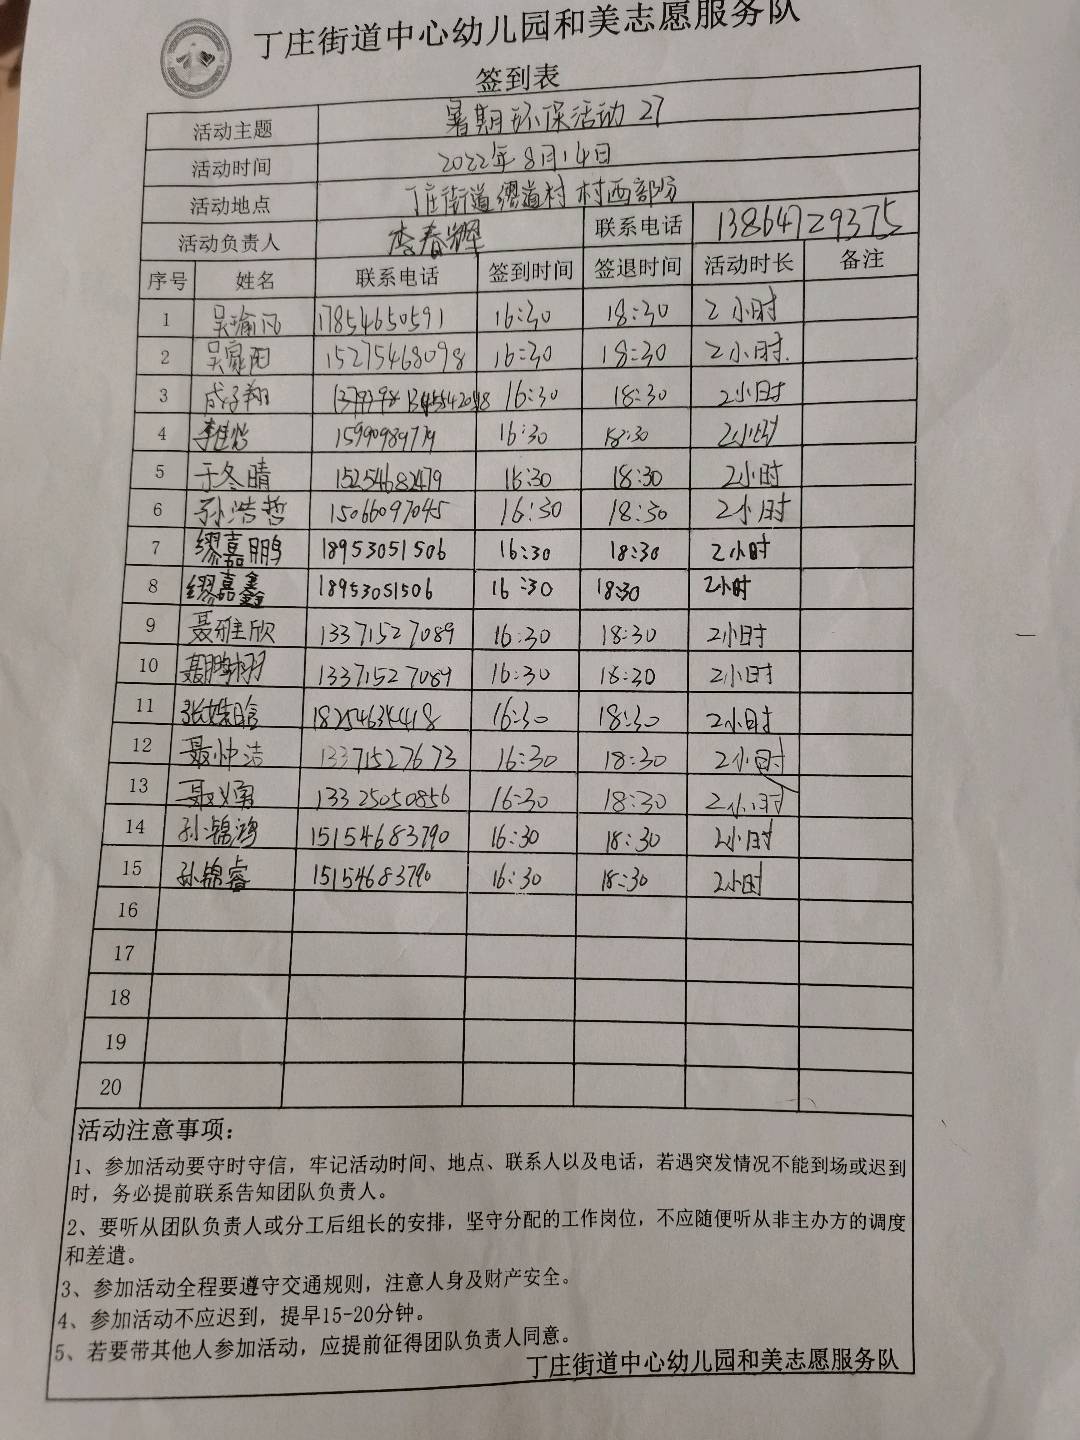 丁庄街道中心幼儿园和美志愿服务队
签到表
活动主题 暑期环保活动 27
活动时间 2022年8月14日
活动地点 丁庄街道缪道村 村西部分
活动负责人 李春辉 联系电话 13864729375
序号 姓名 联系电话 签到时间 签退时间 活动时长 备注
1 吴瑜凡 17854650591 16:30 18:30 2小时
2 吴家阳 15275468098 16:30 18:30 2小时.
3 成子翔 16:30 18:30 2小时
4 16:30 18:30 2小时
5 于冬晴 15254682479 16:30 18:30 2小时
6 孙浩哲 15066097045 16:30 18:30 2小时
7 缪嘉鹏 18953051506 16:30 18:30 2小时
8 缪嘉鑫 18953051506 16:30 18:30 2小时
9 聂雅欣 13371527089 16:30 18:30 2小时
10 13371527089 16:30 18:30 2小时
11 16:30 18:30 2小时
12 聂帅洁 13371527673 16:30 18:30 2小时
13 聂义勇 13325050856 16:30 18:30 2小时
14 孙锦鸿 15154683790 16:30 18:30 2小时
15 孙锦睿 15154683790 16:30 18:30 2小时
16
17
18
19
20
活动注意事项：
1、参加活动要守时守信，牢记活动时间、地点、联系人以及电话，若遇突发情况不能到场或迟到
时，务必提前联系告知团队负责人。
2、要听从团队负责人或分工后组长的安排，坚守分配的工作岗位，不应随便听从非主办方的调度
和差遣。
3、参加活动全程要遵守交通规则，注意人身及财产安全。
4、参加活动不应迟到，提早15-20分钟。
5、若要带其他人参加活动，应提前征得团队负责人同意。
丁庄街道中心幼儿园和美志愿服务队